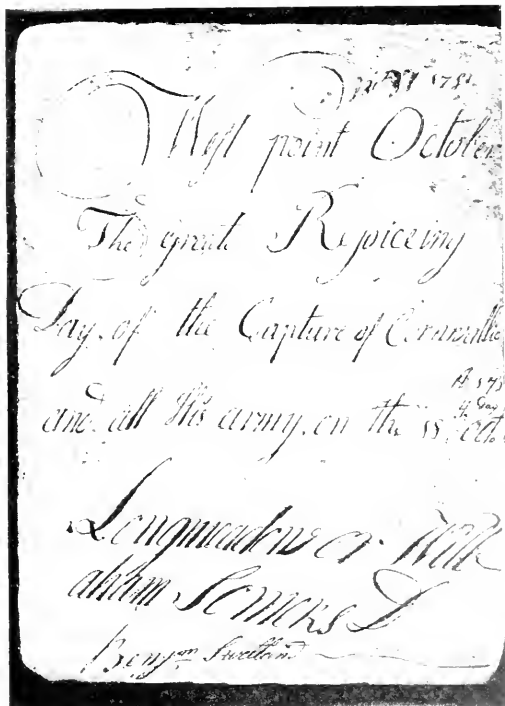 1781
West point October
The great Rejoiceing
Day of the Capture of Cornwallis
and all His army on the octo.
Day
Longmeadow or Wilb
aham Somers
Benjmn Sweetland